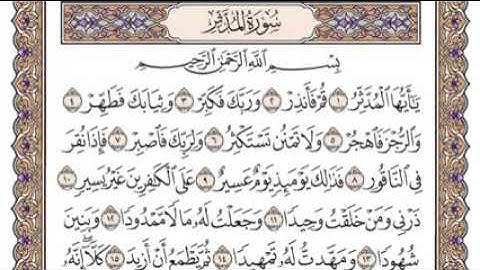 سُورَةُ الْمُدَّثِّرِ
بِسْمِ اللَّهِ الرَّحْمَٰنِ الرَّحِيمِ
يَٰٓأَيُّهَا ٱلْمُدَّثِّرُ ١ قُمْ فَأَنذِرْ ٢ وَرَبَّكَ فَكَبِّرْ ٣ وَثِيَابَكَ فَطَهِّرْ ٤
وَٱلرُّجْزَ فَٱهْجُرْ ٥ وَلَا تَمْنُن تَسْتَكْثِرُ ٦ وَلِرَبِّكَ فَٱصْبِرْ ٧ فَإِذَا نُقِرَ
فِى ٱلنَّاقُورِ ٨ فَذَٰلِكَ يَوْمَئِذٍ يَوْمٌ عَسِيرٌ ٩ عَلَى ٱلْكَٰفِرِينَ غَيْرُ يَسِيرٍ ١٠
ذَرْنِى وَمَنْ خَلَقْتُ وَحِيدًا ١١ وَجَعَلْتُ لَهُۥ مَالًا مَّمْدُودًا ١٢ وَبَنِينَ
شُهُودًا ١٣ وَمَهَّدتُّ لَهُۥ تَمْهِيدًا ١٤ ثُمَّ يَطْمَعُ أَنْ أَزِيدَ ١٥ كَلَّآ إِنَّهُۥ